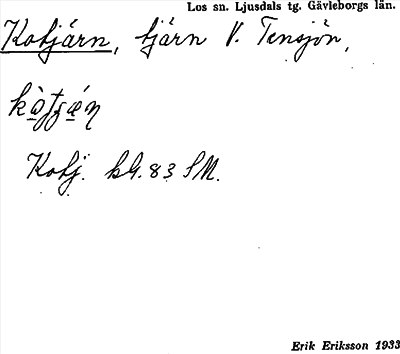 Los sn. Ljusdals tg. Gävleborgs län.
Kotjärn, tjärn V. Tensjön,
Kotj. bl. 83 SM.
Erik Eriksson 1933